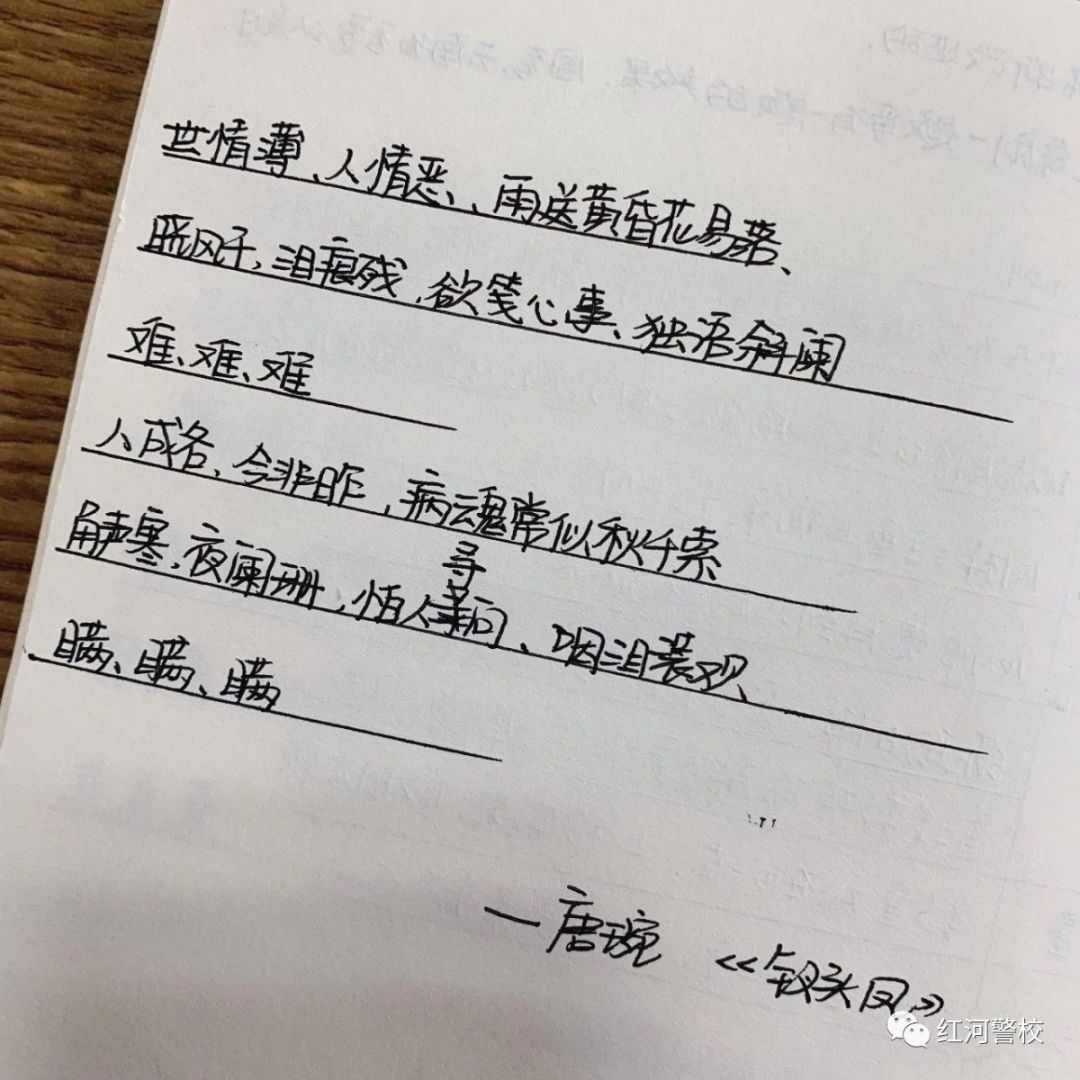 世情薄、人情恶、雨送黄昏花易落、
晓风干，泪痕残，欲笺心事、独语斜阑
难、难、难
人成各，今非昨，病魂常似秋千索
角声寒，夜阑珊，怕人寻问、咽泪装欢、
瞒、瞒、瞒
一唐琬 《钗头凤》
红河警校